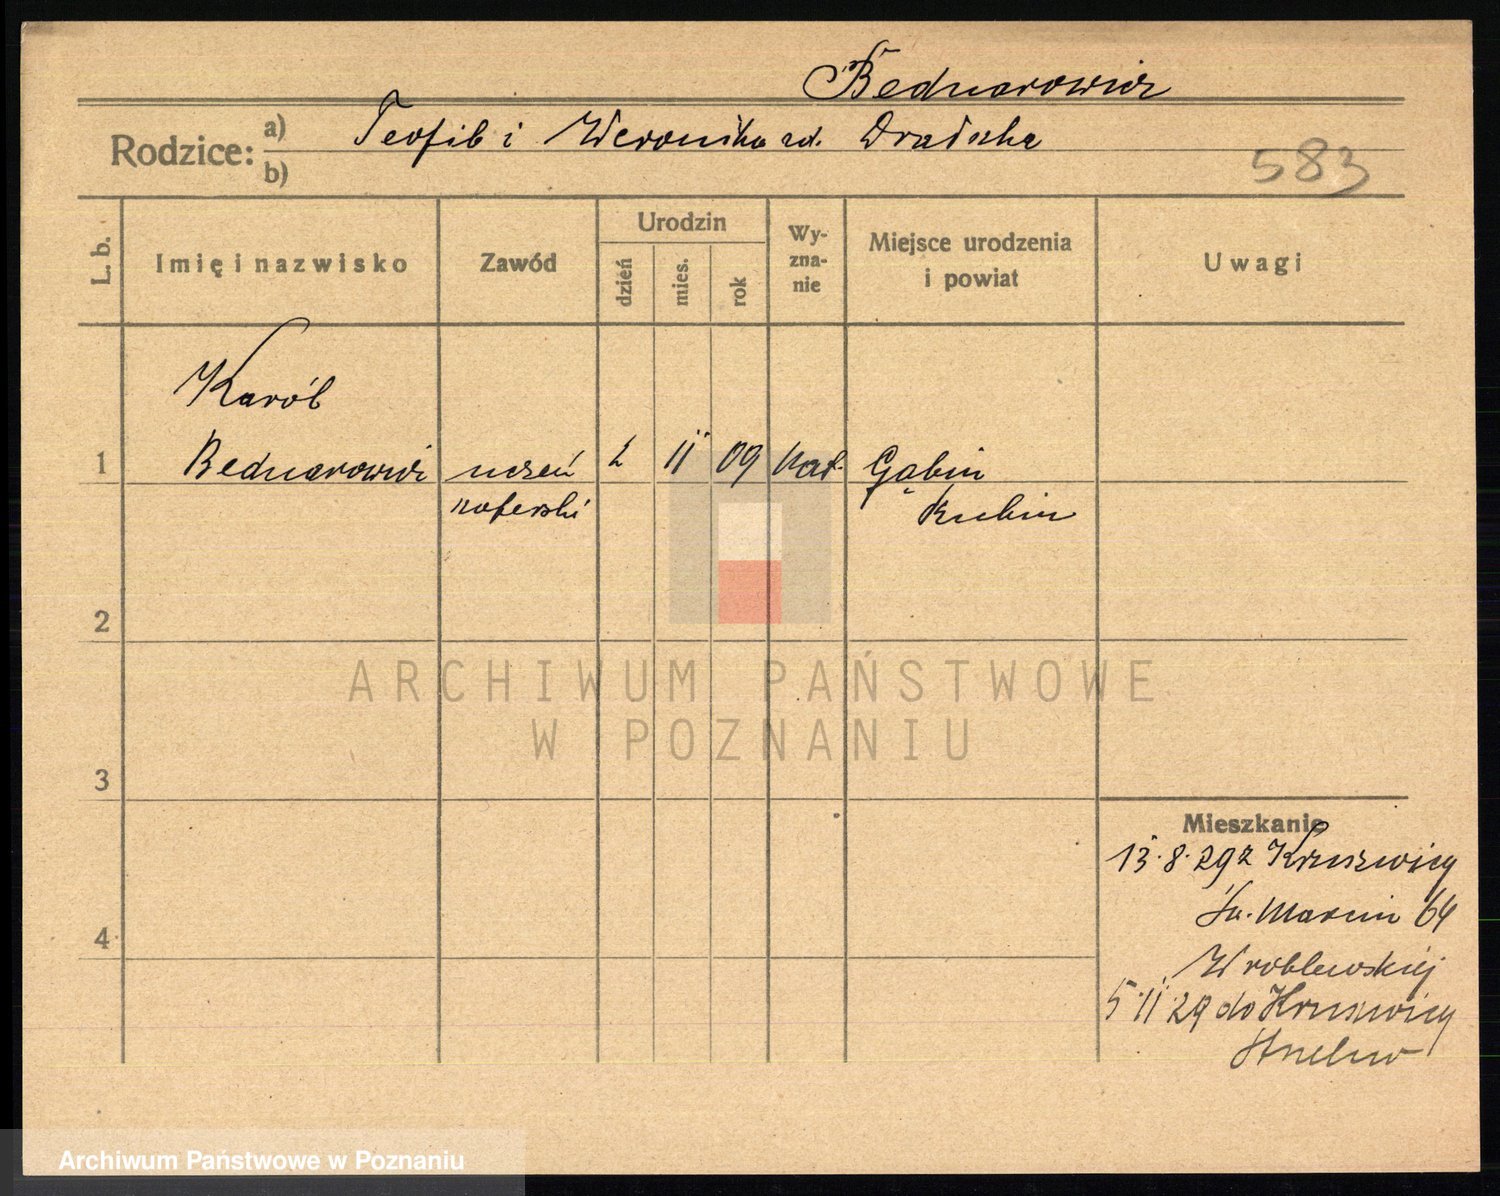 Bednarowicz
Rodzice: a) Teofil i Weronika zd.
b)
583
L. b.
Imię i nazwisko
Zawód
Urodzin
dzień
mies.
rok
Wy-
zna-
nie
Miejsce urodzenia
i powiat
Uwagi
Karól
1 Bednarowicz uczeń 2 11 09 kat. Gąbin
2
3
4
Mieszkanie
13.8.29 z Kruszwicy
Św. Marcin 64
Wróblewskiej
5.11.29 do Kruszwicy
ARCHIWUM PAŃSTWOWE
W POZNANIU
Archiwum Państwowe w Poznaniu